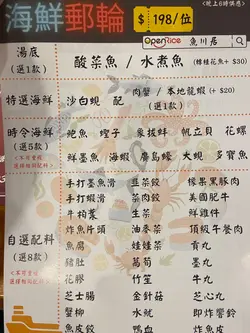 <晚上6時供應>
海鮮郵輪 $198/位
OpenRice 魚川居
湯底
(選1款)
酸菜魚 / 水煮魚 (轉桂花魚+ $30)
特選海鮮 沙白蜆 配 肉蟹 / 本地龍蝦 (+ $20)
(選1款)
時令海鮮
(選5款)
鮑魚 蟶子 象拔蚌 帆立貝 花螺
鮮墨魚 海蝦 廣島蠔 大蜆 多寶魚
自選配料
(選8款)
手打墨魚滑 韭菜餃 椽果黑豚肉
手打蝦滑 菜肉餃 美國肥牛
牛栢葉 生菜 鮮雞件
炸魚片頭 油麥菜 頂級午餐肉
魚腐 娃娃菜 貢丸
豬肚 萵筍 墨丸
花膠 竹笙 牛丸
芝士腸 金針菇 芝心丸
蟹柳 水晶 即炸響鈴
魚皮餃 鴨血 炸魚皮